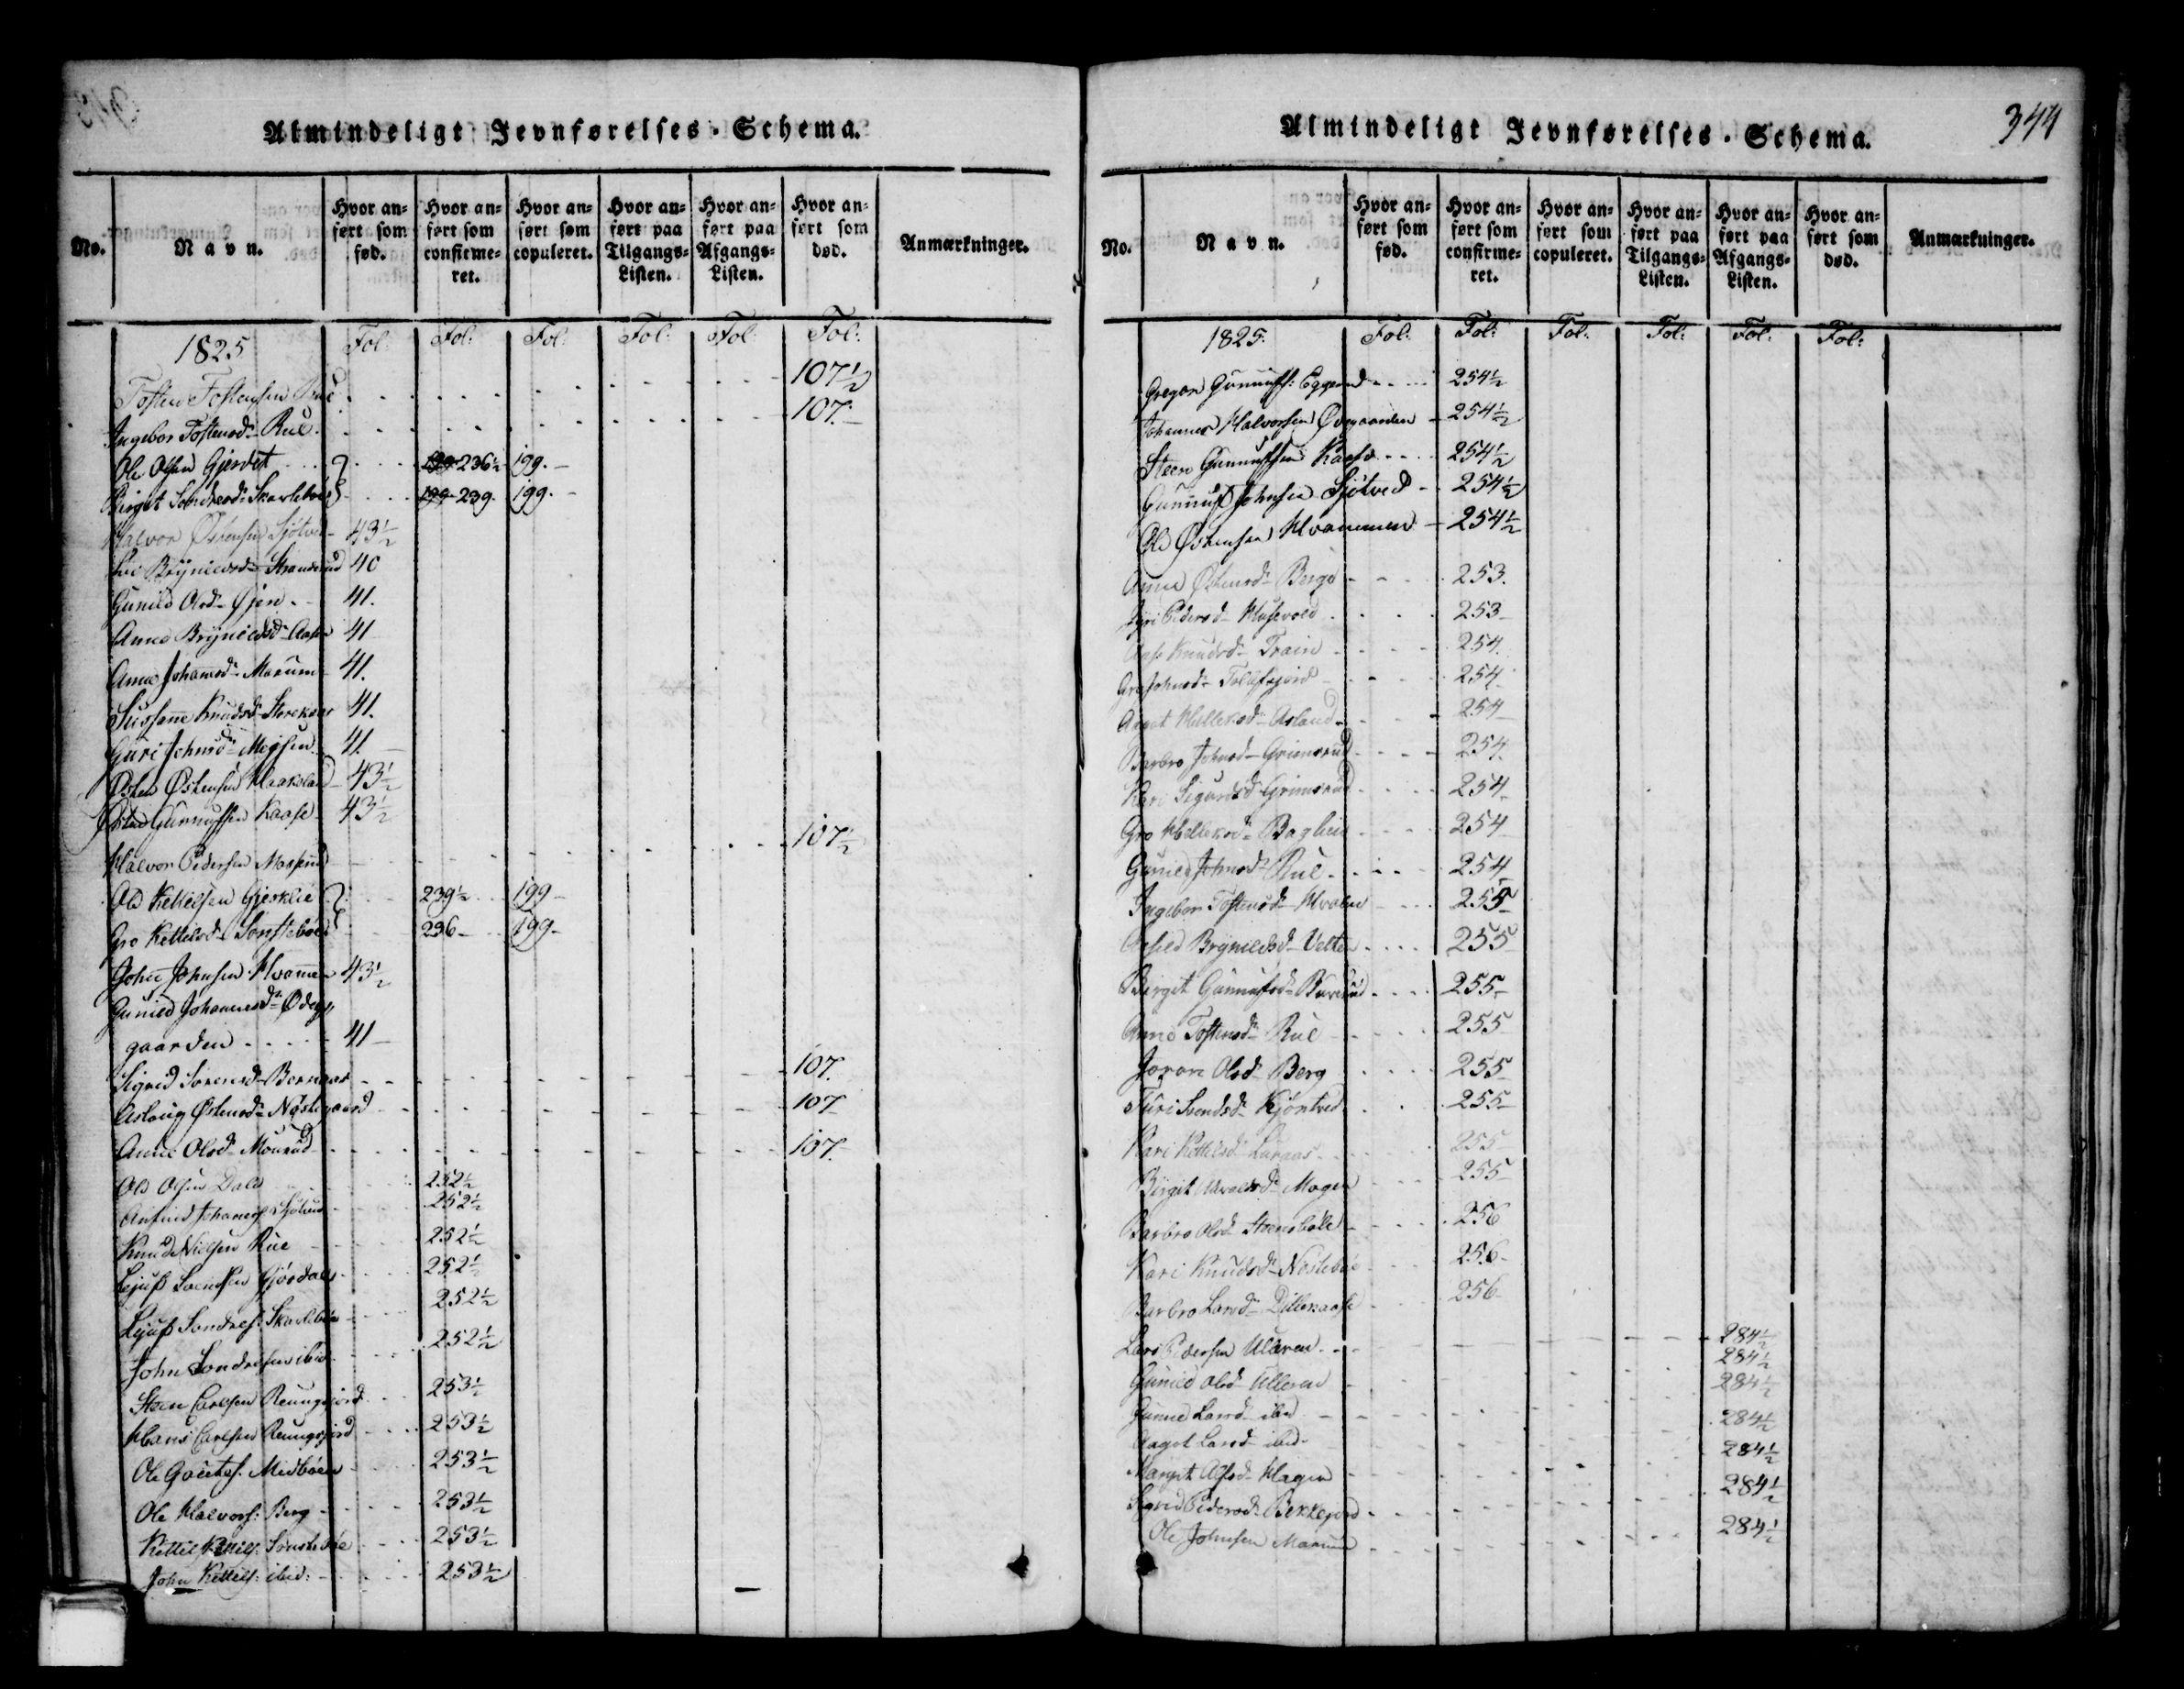 Almindeligt Jevnførelses-Schema.
No.
Navn.
Hvor anført som fød.
Hvor anført som confirmeret.
Hvor anført som copuleret.
Hvor anført paa Tilgangs-Listen.
Hvor anført paa Afgangs-Listen.
Hvor anført som død.
Anmærkninger.
1825 Fol: Fol: Fol: Fol: Fol: Fol:
Tosten Tostensen Rue 107½
Ingebor Tostensd. Rue 107.
Ole Olsen Gjerdet 199 236½ 199.
Birget Sondresd. Skarlebøe 199 239. 199.
Halvor Østensen Sjøtved 43½
Brynildsd. 40
Gunild Olsd. Øjen 41.
Anne Brynildsd. Aasen 41
Anne Johansd. Marum 41.
Sussane Knudsd. Storekaas 41.
Guri Johnsd. 41
Østen Østensen Haakeland 43½
Østen Gunnufsen Kaase 43½
Halvor Pedersen 107½
Ole Kettelsen Gjerklie 239½ 199
Gro Kettelsd. 236 199
John Johnsen Hvamen 43½
Gunild Johannesd. Ødeg
gaarden 41
Sigrid Sørensd. Bernaas 107.
Aslaug Østensd. Nøstegaard 107
Anne Olsd. Mourud 107.
Ole Olsen Dale 252½
Anfind Johanes. 252½
Knud Nielsen Rue 252½
Ljuf Svendsen Gjøsdal 252½
Ljuf Sondres. Skarlebøe 252½
John Sondresen ibid. 252½
Steen Carlsen Reungsjord 253½
Hans Carlsen Reungsjord 253½
Ole Goutes. Midbøen 253½
Ole Halvors: Berg 253½
Kettil 253½
John Kettels: ibid: 253½
Almindeligt Jevnførelses-Schema.
344
No.
Navn.
Hvor anført som fød.
Hvor anført som confirmeret.
Hvor anført som copuleret.
Hvor anført paa Tilgangs-Listen.
Hvor anført paa Afgangs-Listen.
Hvor anført som død.
Anmærkninger.
1825. Fol: Fol: Fol: Fol: Fol: Fol:
Gregar Gunnufs: Eggerud 254½
Johannes Halvorsen Øvgaarden 254½
Steen Gunnufsen Kaasa 254½
Gunnuf Johnsen Sjøtved 254½
Ole Østensen Hvammen 254½
Anne Østensd. Berge 253.
Pedersd. Husevold 253
Aase Knudsd. Train 254.
Gro Johnsd. Tollefsjord 254
Helleksd. Asland 254
Barbro Johnsd. Grimsrud 254.
Kari Sigurdsd. Grimsrud 254
Gro Helleksd. Baglie 254
Gunild Johnsd. Rue 254
Ingebor Tostensd. Hvalen 255
Brynildsd. Velten 255
Birget Gunnufsd. 255
Anne Tostensd. Rue 255
Joran Olsd. Berg 255
Turi Svendsd. Kjøntved 255
Kari Kettilsd. Luraas 255
Birgit Mogen 255
Barbro Olsd. Steensbøle 256
Kari Knudsd. Nøstebøe 256
Barbro Larsd. Dillekaase 256
Lars Pedersen Ulleren 284½
Gunild Olsd. Ulleren 284½
Gunne Larsd. ibid 284½
Aagot Larsd. ibid. 284½
Margit Olsd. Hagen 284½
Sigrid Pedersd. Bekkejord 284½
Ole Johnsen Marum 284½